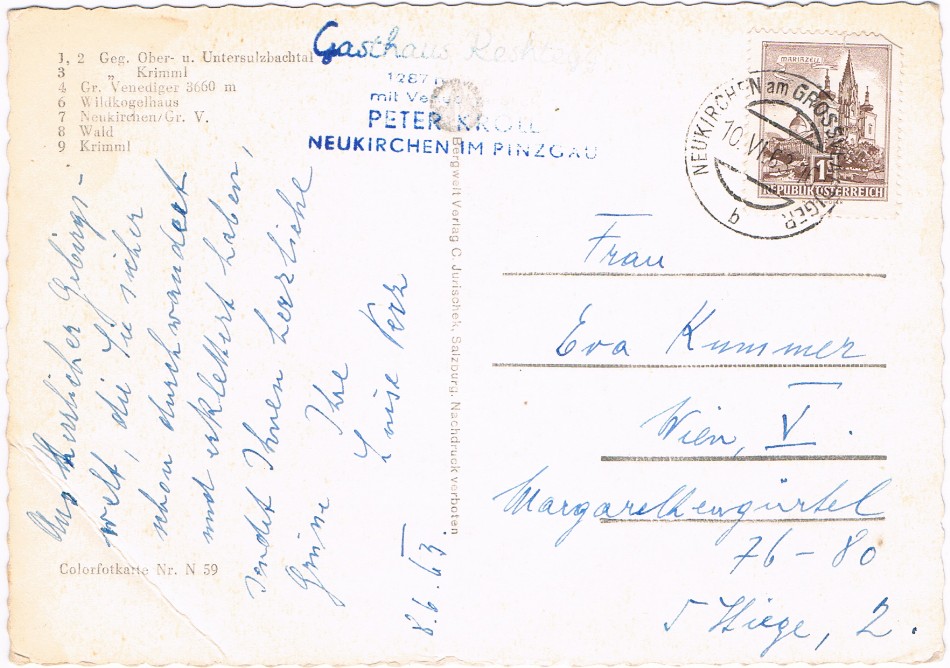 1, 2 Geg. Ober- u. Untersulzbachtal
3 „ Krimml
4 Gr. Venediger 3660 m
6 Wildkogelhaus
7 Neukirchen/Gr. V.
8 Wald
9 Krimml
Gasthaus
1287 m
mit
PETER KROLL
NEUKIRCHEN IM PINZGAU
MARIAZELL
1S
REPUBLIK ÖSTERREICH
NEUKIRCHEN am GROSSVENEDIGER
10.VI.63
b
Aus herrlicher Gebirgs-
welt, die Sie sicher
schon durchwandert
und erklettert haben,
sendet Ihnen herzliche
Grüße Ihre
Luise
8.6.63
Colorfotkarte Nr. N 59
Bergwelt Verlag C. Jurischek, Salzburg. Nachdruck verboten
Frau
Eva Kummer
Wien, V.
Margarethengürtel
76-80
5 Stiege, 2.